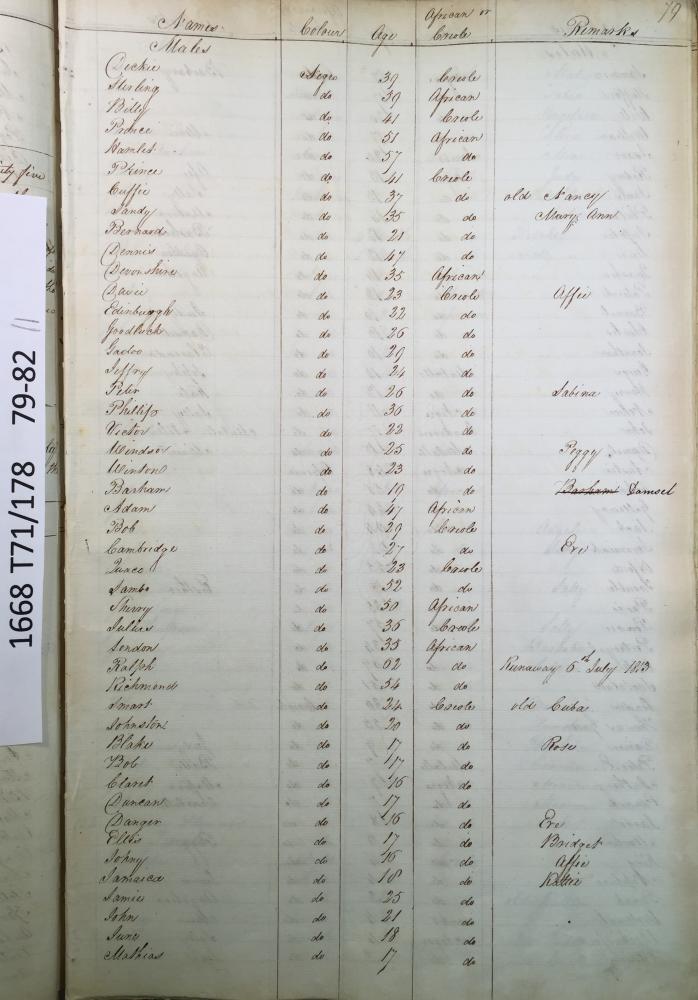 79
Names Colour Age African or Creole Remarks
Males
Dickie Negro 39 Creole
Sterling do 39 African
Billy do 41 Creole
Prince do 51 African
Hamlet do 57 do
Prince do 41 Creole
Cuffie do 37 do old Nancy
Sandy do 35 do Mary Ann
Bernard do 21 do
Dennis do 47 do
Devonshire do 35 African
Davie do 23 Creole Affie
Edinburgh do 22 do
Goodluck do 26 do
Gadoo do 29 do
Jeffry do 24 do
Peter do 26 do Sabina
Phillip do 36 do
Victor do 22 do
Windsor do 25 do Peggy
Winton do 23 do
Barham do 19 do Barham Damsel
Adam do 47 African
Bob do 29 Creole
Cambridge do 27 do Eve
Quaco do 23 Creole
Sambo do 52 do
Sherry do 50 African
Julius do 36 Creole
London do 35 African
Ralph do 62 do Runaway 6th July 1813
Richmond do 54 do
Smart do 24 Creole old Cuba
Johnston do 20 do
Blake do 17 do Rose
Bob do 17 do
Claret do 16 do
Duncan do 17 do
Danger do 16 do Eve
Ellis do 17 do Bridget
Johny do 16 do Affie
Jamaica do 18 do Kattie
Jamie do 25 do
John do 21 do
June do 18 do
Mathias do 17 do
ty five
1668 T71/178 79-82
11